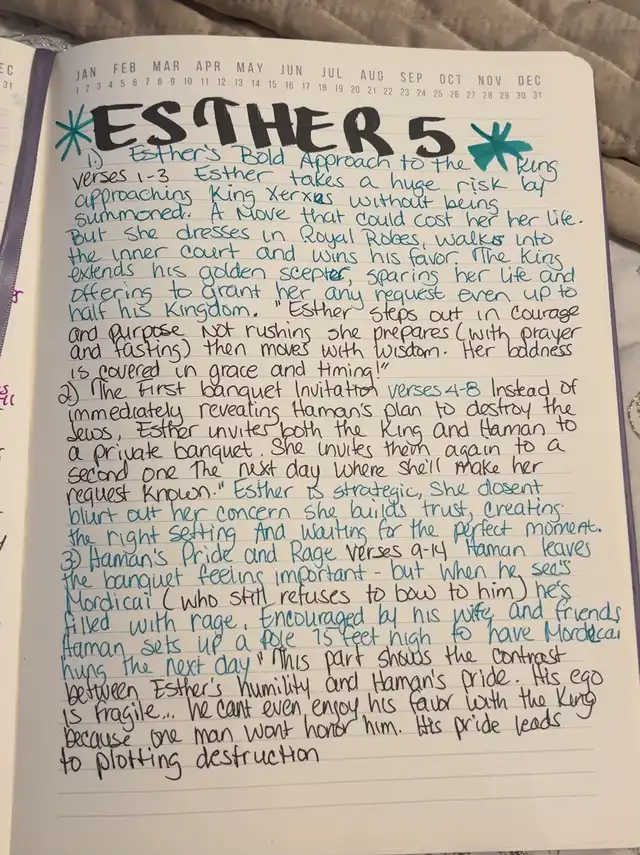 EC
31
JAN FEB MAR APR MAY JUN JUL AUG SEP OCT NOV DEC
1 2 3 4 5 6 7 8 9 10 11 12 13 14 15 16 17 18 19 20 21 22 23 24 25 26 27 28 29 30 31
ESTHER 5
1) Esther's Bold Approach to the King
verses 1-3 Esther takes a huge risk by
approaching King Xerxes without being
summoned. A move that could cost her her life.
But she dresses in Royal Robes, walks into
the inner court and wins his favor. The King
extends his golden scepter, sparing her life and
offering to grant her any request even up to
half his Kingdom. "Esther steps out in courage
and purpose Not rushing she prepares (with prayer
and fasting) then moves with wisdom. Her boldness
is covered in grace and timing!"
2) The First banquet Invitation verses 4-8 Instead of
immediately revealing Haman's plan to destroy the
Jews, Esther invites both the King and Haman to
a private banquet. She invites them again to a
second one The next day where she'll make her
request known." Esther is strategic, She dosent
blurt out her concern she builds trust, creating
the right setting And waiting for the perfect moment.
3) Haman's Pride and Rage verses 9-14 Haman leaves
the banquet feeling important - but when he sees
Mordicai (who still refuses to bow to him) he's
filled with rage. Encouraged by his wife and friends
Haman sets up a pole 75 feet high to have Mordecai
hung the next day "This part shows the contrast
between Esther's humility and Haman's pride. His ego
is fragile... he cant even enjoy his favor with the King
because one man wont honor him. His pride leads
to plotting destruction